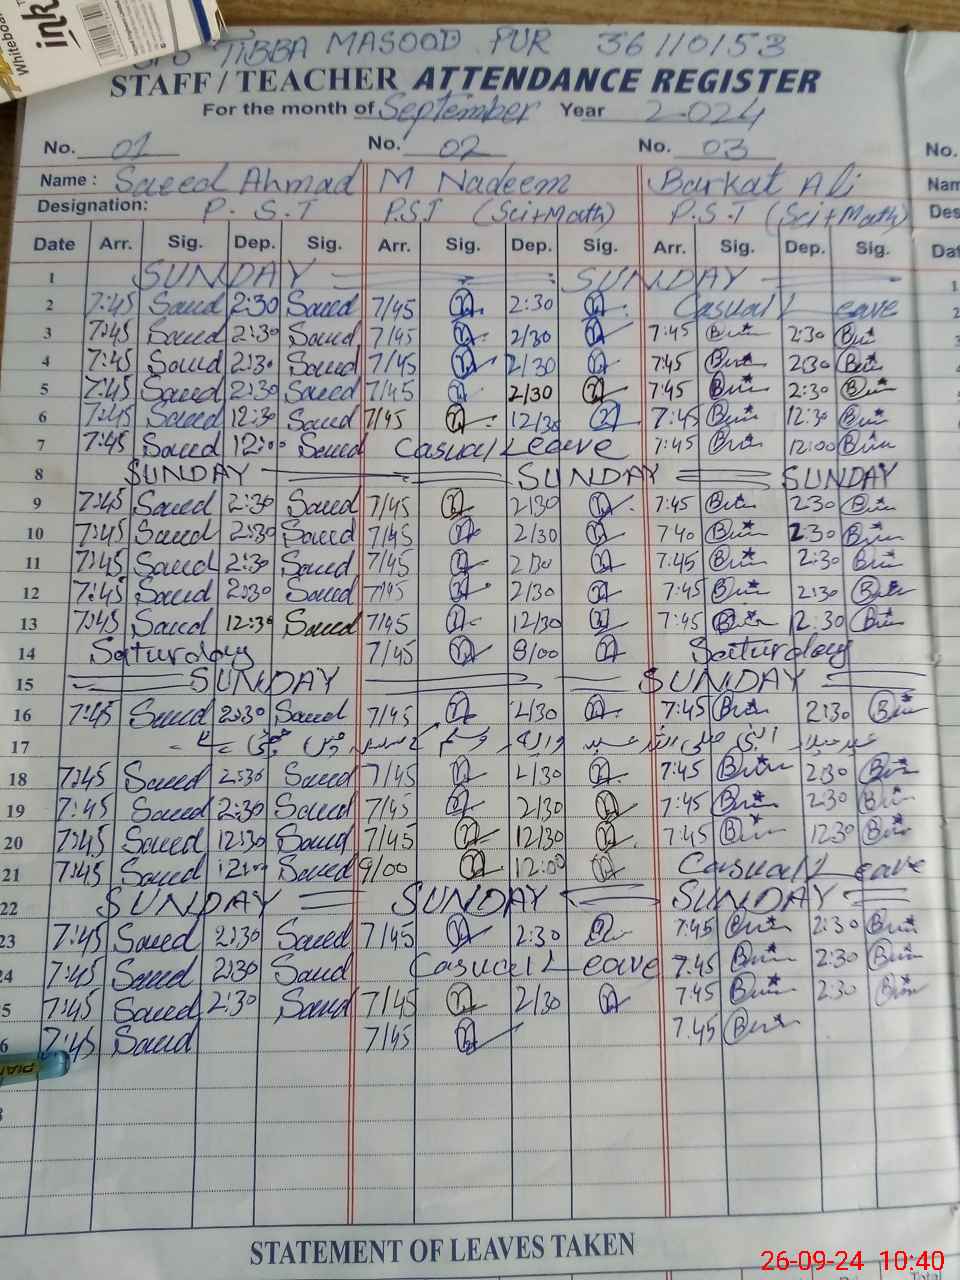 Whiteboard
ink
TIBBA MASOOD PUR 36110153
STAFF/TEACHER ATTENDANCE REGISTER
For the month of September Year 2024
No. 01 No. 02 No. 03 No.
Name : Saeed Ahmad M Nadeem Barkat Ali Nam
Designation: P.S.T P.S.T (Sci+Math) P.S.T (Sci+Math) Des
Date Arr. Sig. Dep. Sig. Arr. Sig. Dep. Sig. Arr. Sig. Dep. Sig. Da
1 SUNDAY SUNDAY 1
2 7:45 Saeed 2:30 Saeed 7/45 2:30 Casual Leave 2
3 7:45 Saeed 2:30 Saeed 7/45 2/30 7:45 2:30
4 7:45 Saeed 2:30 Saeed 7/45 2/30 7:45 2:30
5 7:45 Saeed 2:30 Saeed 7/45 2/30 7:45 2:30
6 7:45 Saeed 12:30 Saeed 7/45 12/30 7:45 12:30
7 7:45 Saeed 12:00 Saeed Casual Leave 7:45 12:00
8 SUNDAY SUNDAY SUNDAY
9 7:45 Saeed 2:30 Saeed 7/45 2/30 7:45 2:30
10 7:45 Saeed 2:30 Saeed 7/45 2/30 7:40 2:30
11 7:45 Saeed 2:30 Saeed 7/45 2/30 7:45 2:30
12 7:45 Saeed 2:30 Saeed 7/45 2/30 7:45 2:30
13 7:45 Saeed 12:30 Saeed 7/45 12/30 7:45 12:30
14 Saturday 7/45 8/00 Saturday
15 SUNDAY SUNDAY
16 7:45 Saeed 2:30 Saeed 7/45 2/30 7:45 2:30
17
18 7:45 Saeed 2:30 Saeed 7/45 2/30 7:45 2:30
19 7:45 Saeed 2:30 Saeed 7/45 2/30 7:45 2:30
20 7:45 Saeed 12:30 Saeed 7/45 12/30 7:45 12:30
21 7:45 Saeed 12:00 Saeed 9/00 12:00 Casual Leave
22 SUNDAY SUNDAY SUNDAY
23 7:45 Saeed 2:30 Saeed 7/45 2:30 7:45 2:30
24 7:45 Saeed 2:30 Saeed Casual Leave 7:45 2:30
5 7:45 Saeed 2:30 Saeed 7/45 2/30 7:45 2:30
6 7:45 Saeed 7/45 7:45
STATEMENT OF LEAVES TAKEN
26-09-24 10:40
Total